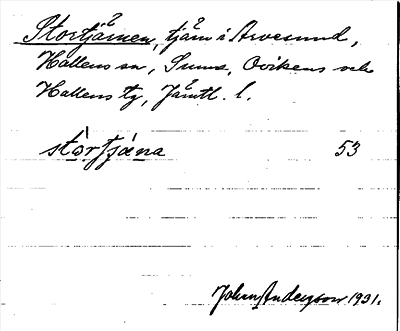 Stortjärnen, tjärn i Arvesund,
Hallens sn, Sunne, Oviken o
Hallens tg, Jämtl. l.
stòrtjǽna 53
John Anderson 1931.